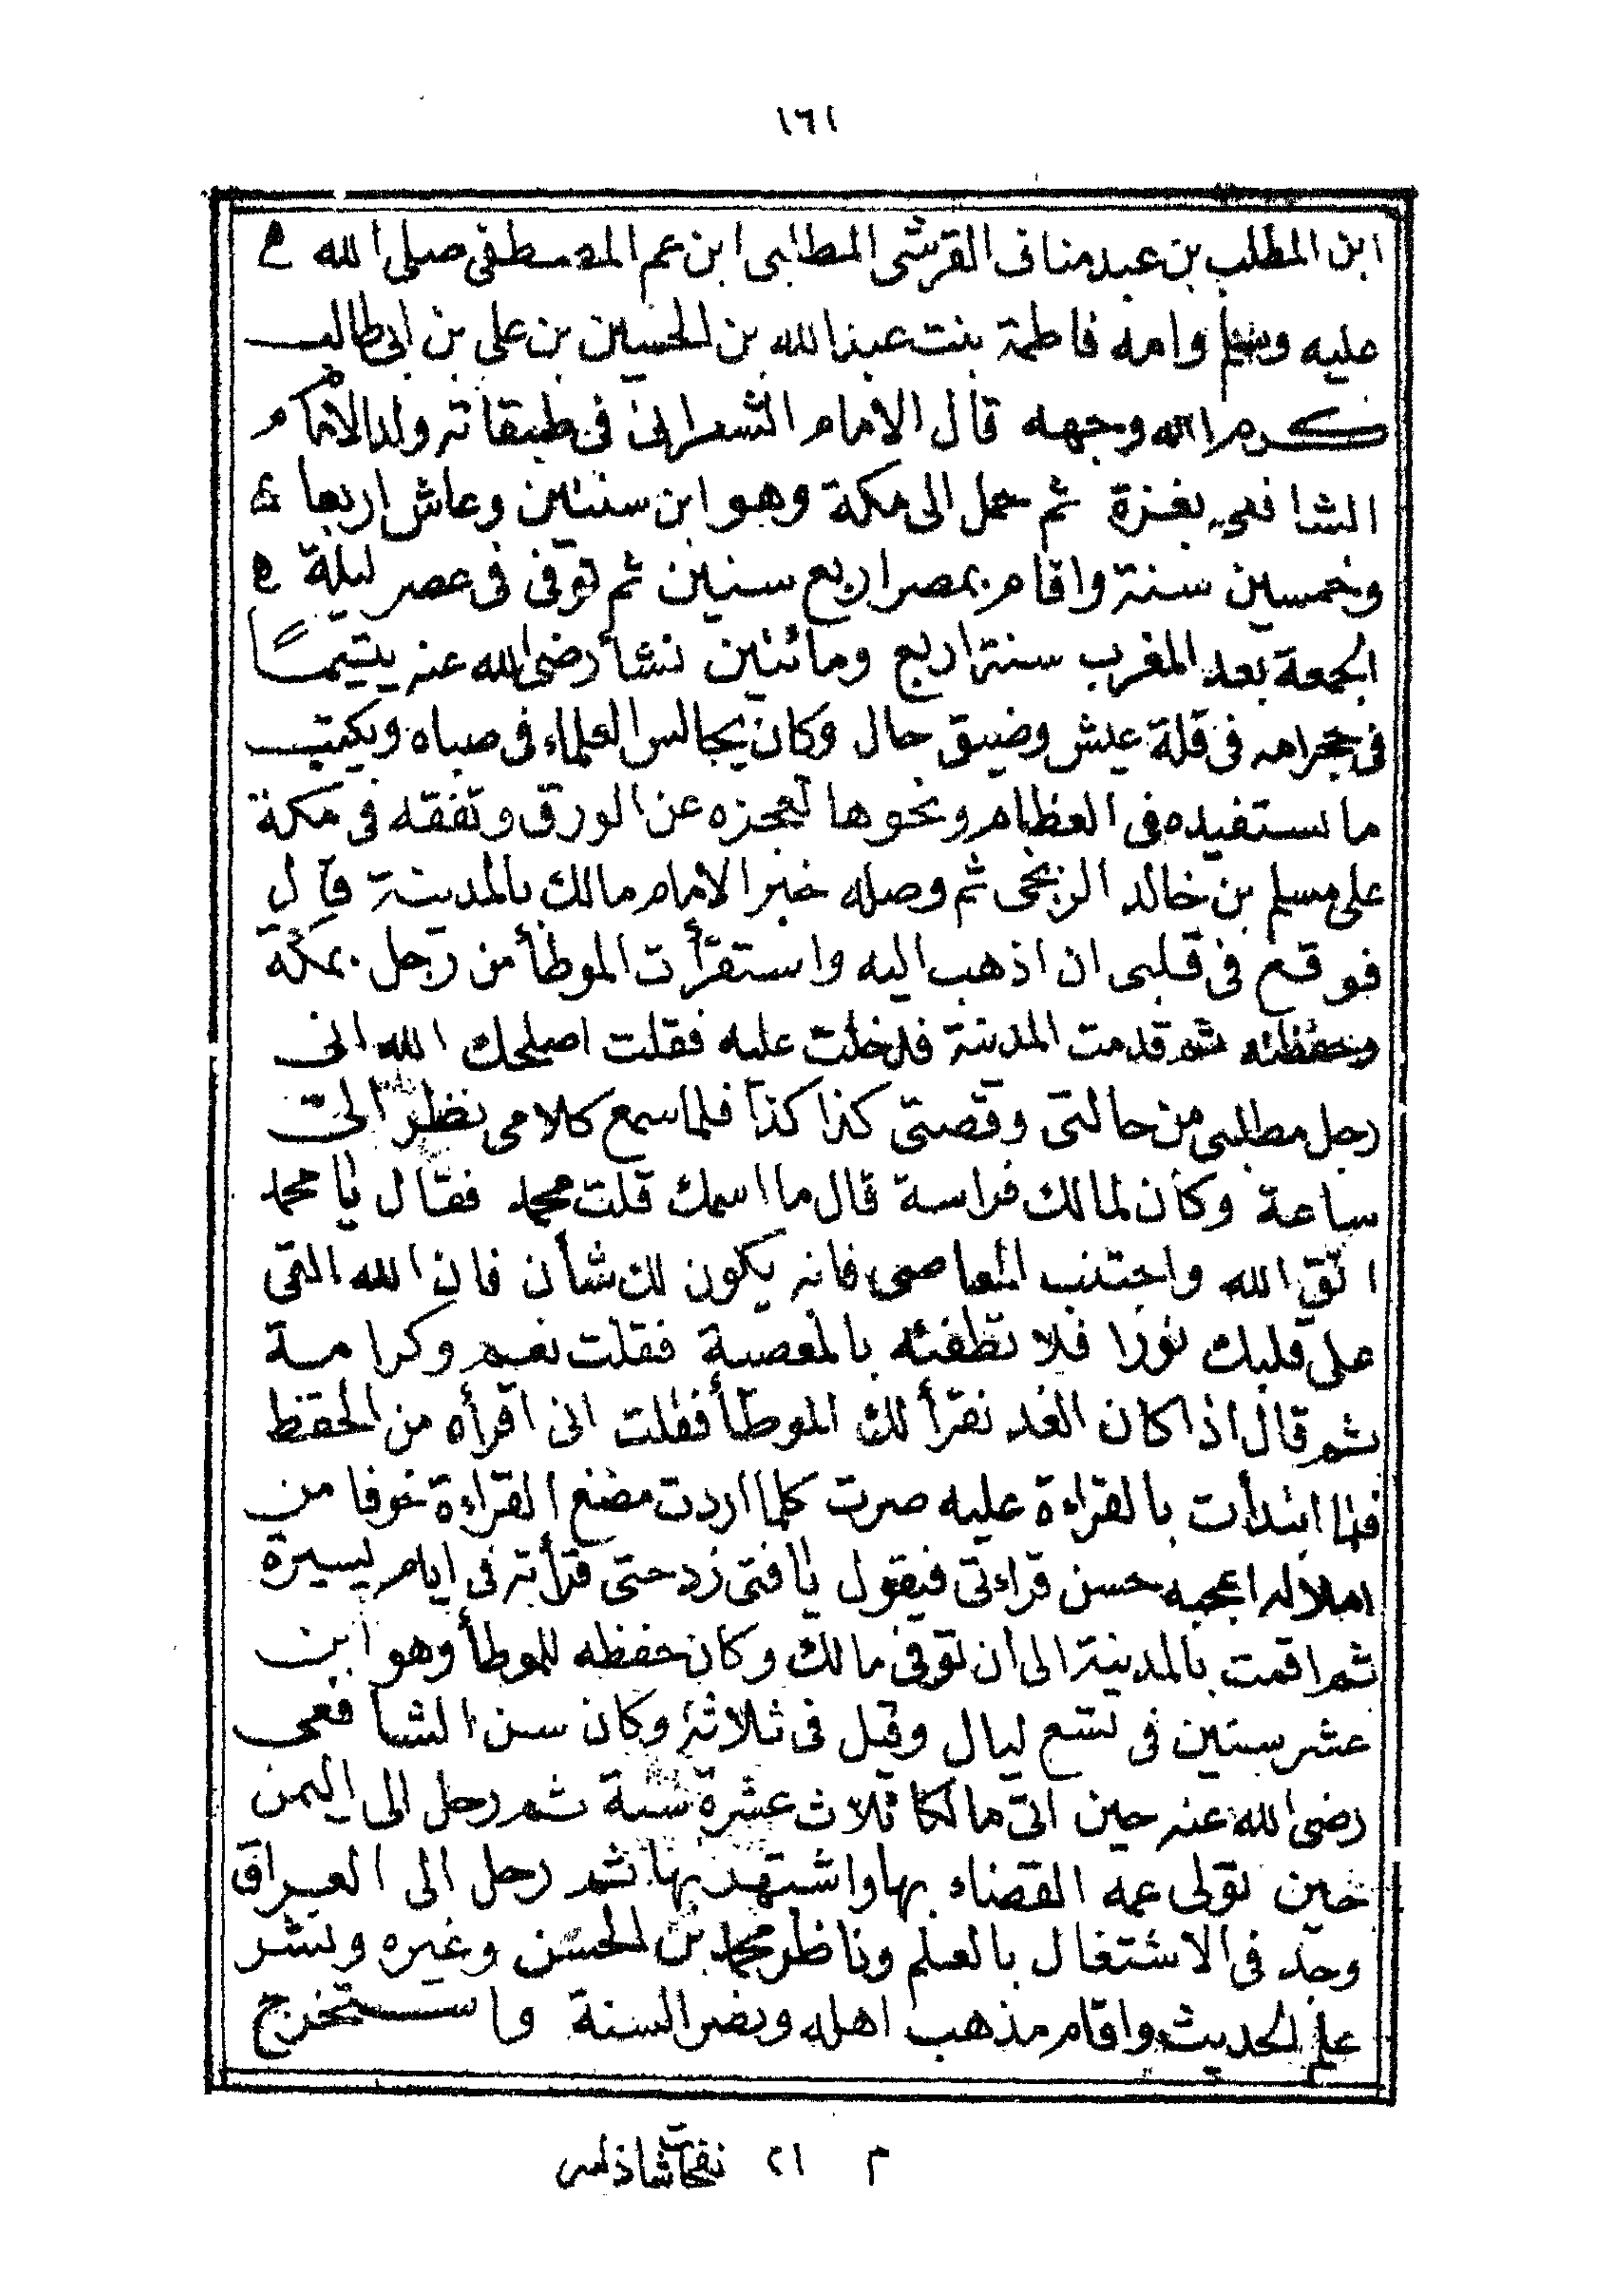 ١٦١
ابن المطلب بن عبد مناف القرشى المطلبى ابن عم المصطفى صلى الله
عليه وسلم وامه فاطمة بنت عبد الله بن الحسين بن على بن ابى طالب
كرم الله وجهه قال الامام الشعرانى فى طبقاته ولد الامام
الشافعى بغزة ثم حمل الى مكة وهو ابن سنتين وعاش اربعا
وخمسين سنة واقام بمصر اربع سنين ثم توفى فى عصر ليلة
الجمعة بعد المغرب سنة اربع ومائتين نشأ رضى الله عنه يتيمًا
فى حجر امه فى قلة عيش وضيق حال وكان يجالس العلماء فى صباه ويكتب
ما يستفيده فى العظام ونحوها لعجزه عن الورق وتفقه فى مكة
على مسلم بن خالد الزنجى ثم وصله خبر الامام مالك بالمدينة قال
فوقع فى قلبى ان اذهب اليه واستقرأت الموطأ من رجل بمكة
وحفظته ثم قدمت المدينة فدخلت عليه فقلت اصلحك الله انى
رجل مطلبى من حالتى وقصتى كذا كذا فلما سمع كلامى نظر الى
ساعة وكان لمالك فراسة قال ما اسمك قلت محمد فقال يا محمد
اتق الله واجتنب المعاصى فانه يكون لك شأن فان الله القى
على قلبك نورا فلا تطفئه بالمعصية فقلت نعم وكرامة
ثم قال اذا كان الغد نقرأ لك الموطأ فقلت انى اقرأه من الحفظ
فلما ابتدأت بالقراءة عليه صرت كلما اردت القراءة خوفا من
املاله اعجبه حسن قراءتى فيقول يا فتى زد حتى قرأته فى ايام يسيرة
ثم اقمت بالمدينة الى ان توفى مالك وكان حفظه للموطأ وهو ابن
عشر سنين فى تسع ليال وقيل فى ثلاثة وكان سن الشافعى
رضى الله عنه حين اتى مالكا ثلاث عشرة سنة ثم رحل الى اليمن
حين تولى عمه القضاء بها واشتهد بها ثم رحل الى العراق
وجد فى الاشتغال بالعلم وناظر محمد بن الحسن وغيره ونشر
علم الحديث واقام مذهب اهله ونصر السنة واستخرج
م ٢١ نفحات شاذلية